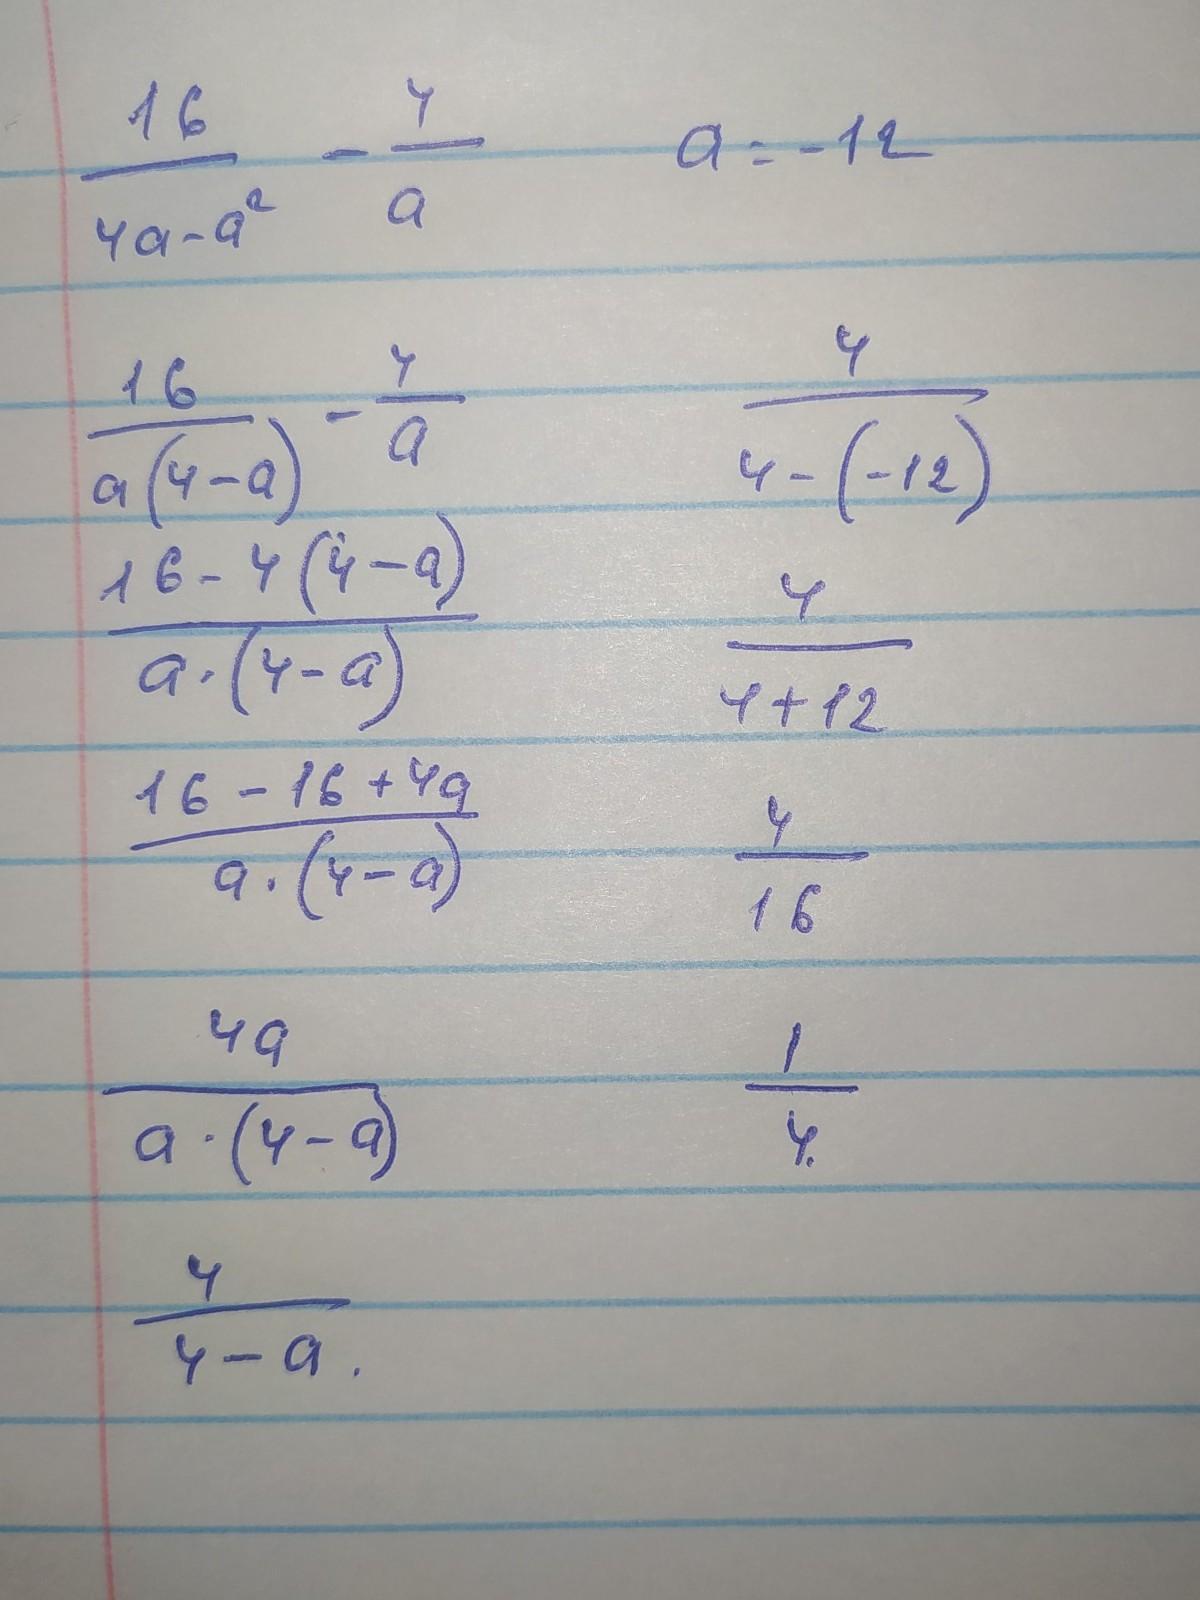 16/(4a-a²) - 4/a
16/(a(4-a)) - 4/a
(16-4(4-a))/(a·(4-a))
(16-16+4a)/(a·(4-a))
4a/(a·(4-a))
4/(4-a).
a=-12
4/(4-(-12))
4/(4+12)
4/16
1/4.